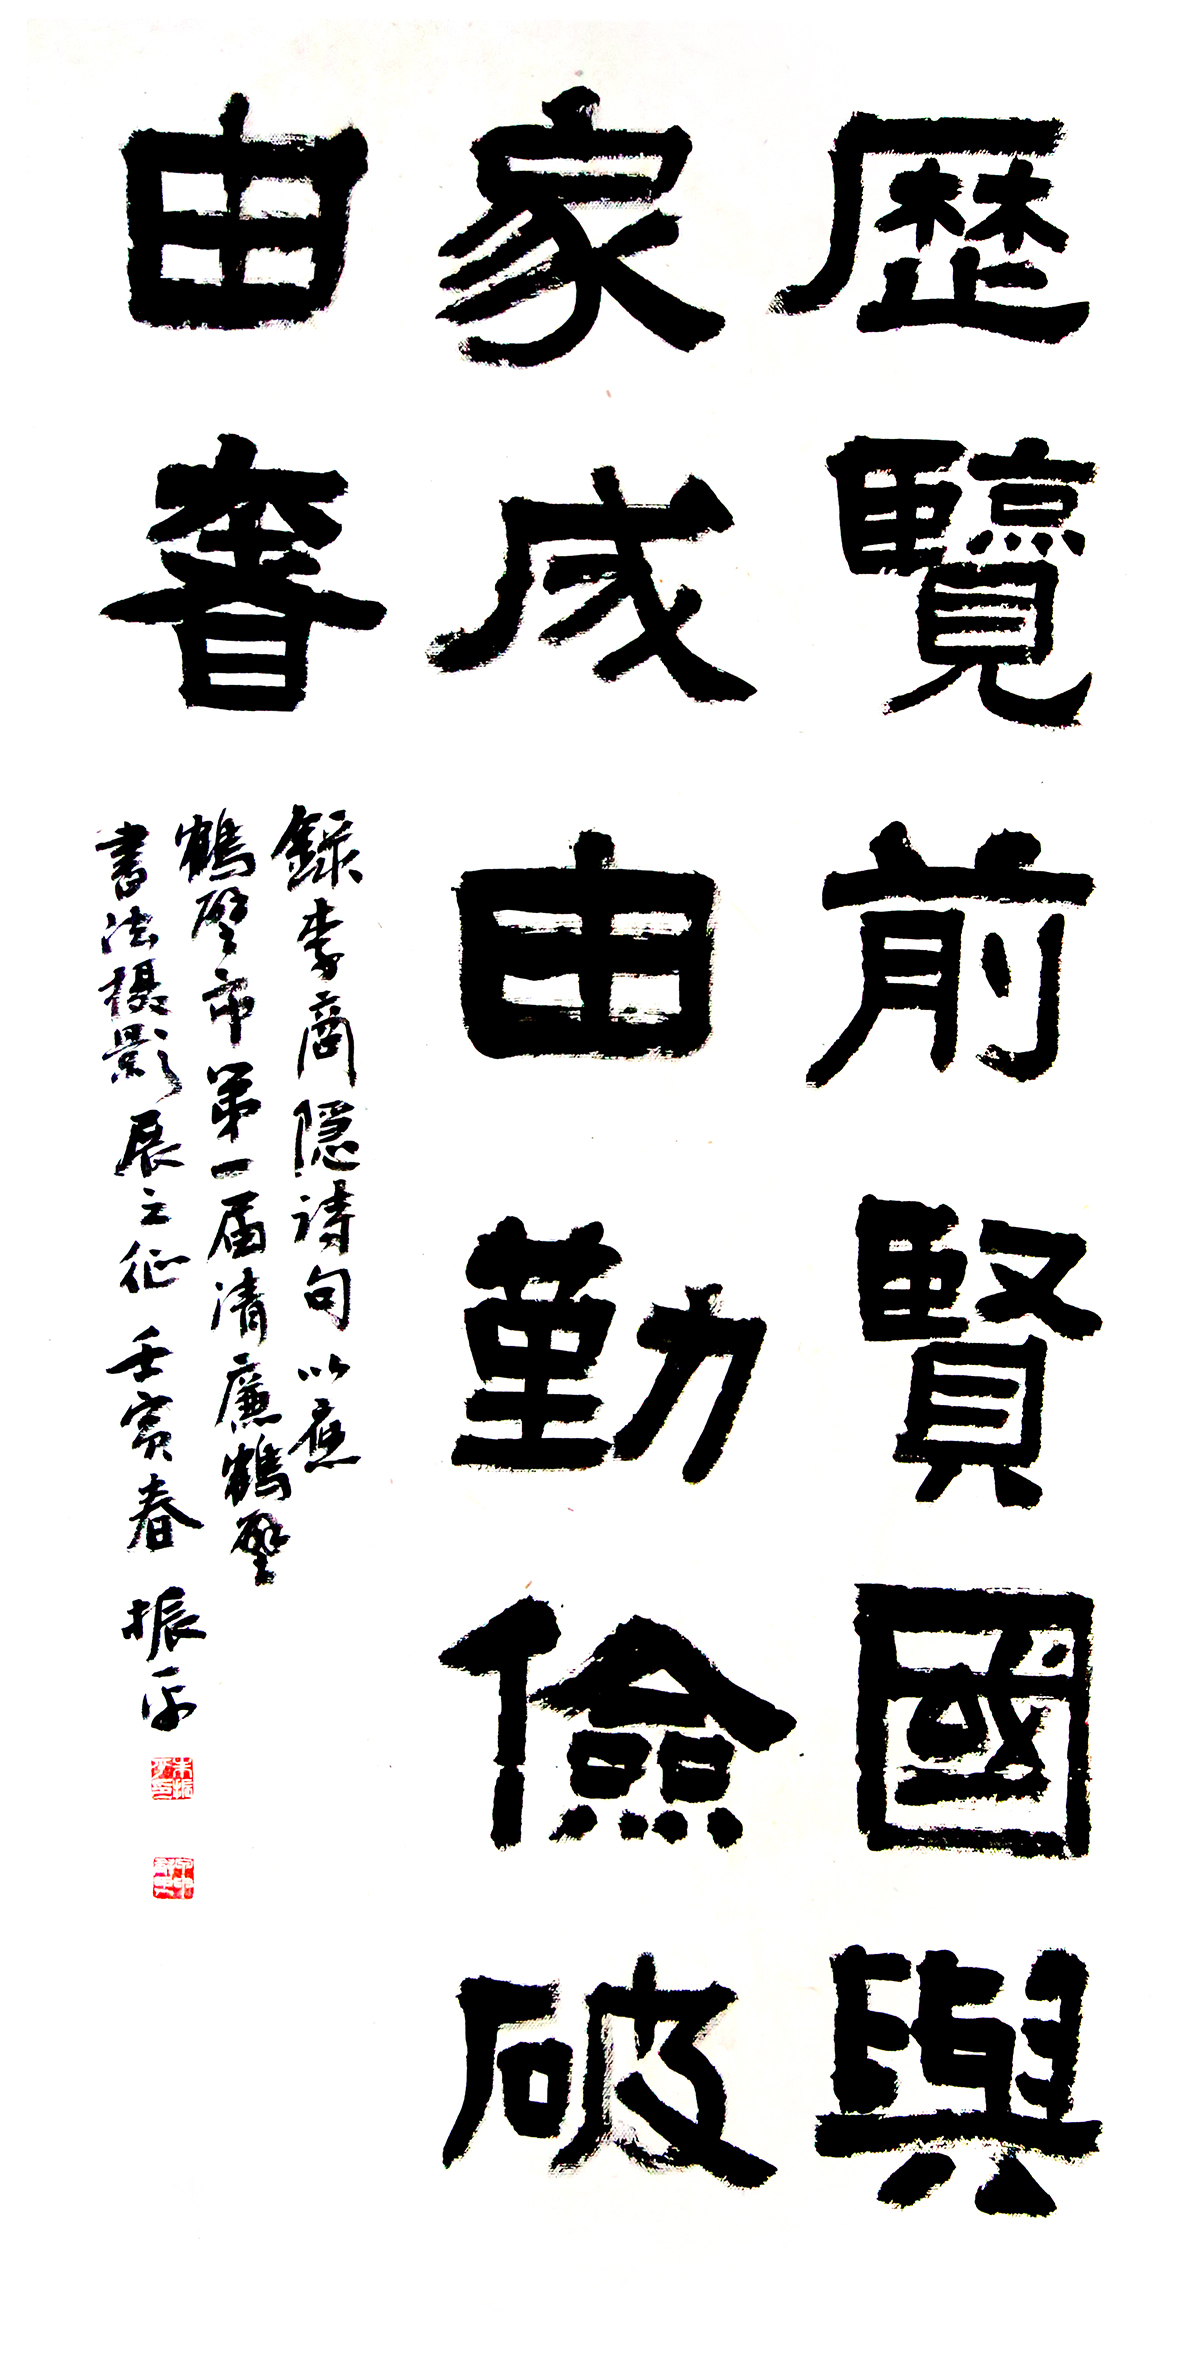 歴覽前賢國與
家成由勤儉破
由奢
錄李商隐詩句以應
鶴壁市第一届清廉鶴壁
書法摄影展之征 壬寅春 振平
朱振平印